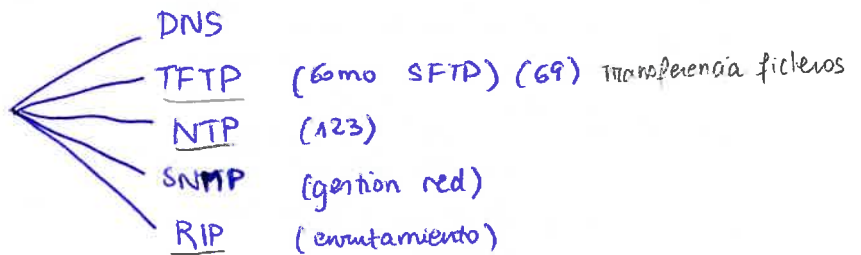 DNS
TFTP (como SFTP) (69) Transferencia ficheros
NTP (123)
SNMP (gestion red)
RIP (enrutamiento)